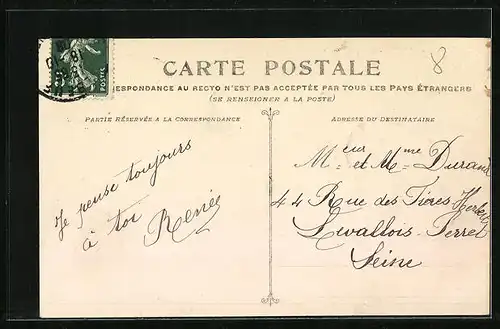 8
CARTE POSTALE
RESPONDANCE AU RECTO N'EST PAS ACCEPTÉE PAR TOUS LES PAYS ÉTRANGERS
(SE RENSEIGNER A LA POSTE)
PARTIE RÉSERVÉE A LA CORRESPONDANCE
ADRESSE DU DESTINATAIRE
Je pense toujours
à toi Renée
Meur et Mme Durand
44 Rue des Frères Herbert
Levallois-Perret
Seine
POSTES